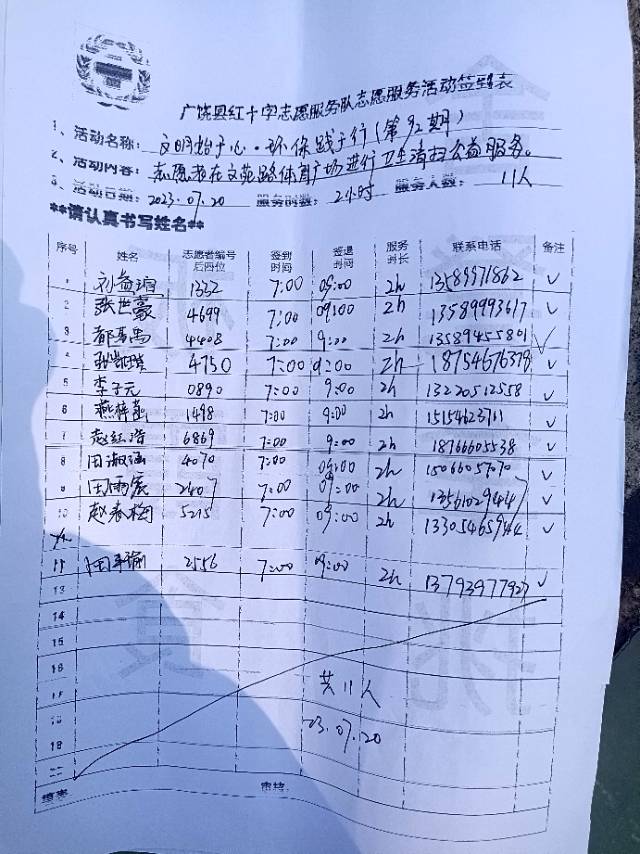 广饶县红十字志愿服务队志愿服务活动签到表
1、活动名称：文明始于心·环保践于行（第92期）
2、活动内容：志愿者在文苑路体育广场进行卫生清扫公益服务。
3、活动日期：2023.07.20 服务时数：2小时 服务人数：11人
**请认真书写姓名**
序号 姓名 志愿者编号后四位 签到时间 签退时间 服务时长 联系电话 备注
1 刘益瑄 1332 7:00 09:00 2h 13589971862 ✓
2 张世豪 4699 7:00 09:00 2h 13589993617 ✓
3 都禹禹 4408 7:00 9:00 2h 13589455801 ✓
4 4750 7:00 9:00 2h 18754676378 ✓
5 李子元 0890 7:00 9:00 2h 13220512558 ✓
6 燕梓菡 1498 7:00 9:00 2h 15154623711 ✓
7 赵红浩 6869 7:00 9:00 2h 18766605538 ✓
8 田淑涵 4070 7:00 09:00 2h 15066057070 ✓
9 田雨宸 2407 7:00 09:00 2h 13561029447 ✓
10 赵春梅 5215 7:00 09:00 2h 13305465944 ✓
11 2556 7:00 09:00 2h 13793977927 ✓
13
14
15
16
17 共11人
18 23.07.20
19
20
填表： 审核：